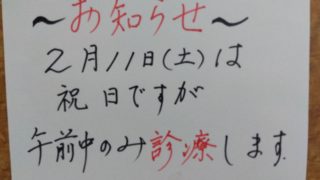 ～お知らせ～
2月11日(土)は
祝日ですが
午前中のみ診療します.